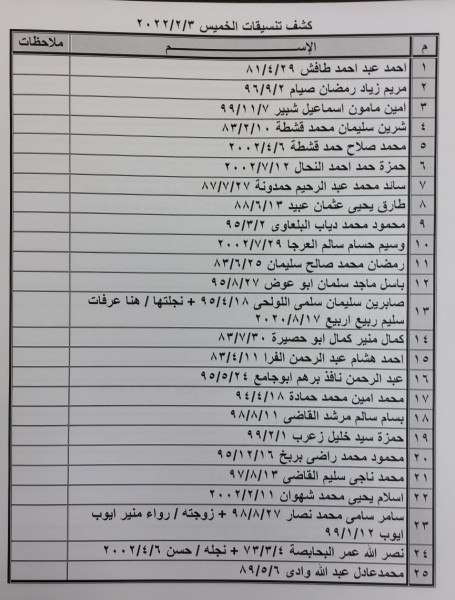 كشف تنسيقات الخميس ٢٠٢٢/٢/٣
م الإســـــم ملاحظات
١ احمد عبد احمد طافش ٨١/٤/٢٩
٢ مريم زياد رمضان صيام ٩٦/٩/٢
٣ امين مامون اسماعيل شبير ٩٩/١١/٧
٤ شرين سليمان محمد قشطة ٨٣/٢/١٠
٥ محمد صلاح حمد قشطة ٢٠٠٢/٤/٦
٦ حمزة حمد احمد النحال ٢٠٠٢/٧/١٢
٧ سائد محمد عبد الرحيم حمدونة ٨٧/٧/٢٧
٨ طارق يحيى عثمان عبيد ٨٨/٦/١٣
٩ محمود محمد دياب البلعاوى ٩٥/٣/٢
١٠ وسيم حسام سالم العرجا ٢٠٠٢/٧/٢٩
١١ رمضان محمد صالح سليمان ٨٣/٦/٢٥
١٢ باسل ماجد سلمان ابو عوض ٩٥/٨/٢٧
١٣ صابرين سليمان سلمى اللولحى ٩٥/٤/١٨ + نجلتها / هنا عرفات
سليم ربيع اربيع ٢٠٢٠/٨/١٧
١٤ كمال منير كمال ابو حصيرة ٨٣/٧/٣٠
١٥ احمد هشام عبد الرحمن الفرا ٨٣/٤/١١
١٦ عبد الرحمن نافذ برهم ابوجامع ٩٥/٥/٢٤
١٧ محمد امين محمد حمادة ٩٤/٤/١٨
١٨ بسام سالم مرشد القاضى ٩٨/٨/١١
١٩ حمزة سيد خليل زعرب ٩٩/٢/١
٢٠ محمود محمد راضى بريخ ٩٥/١٢/١٦
٢١ محمد ناجى سليم القاضى ٩٧/٨/١٣
٢٢ اسلام يحيى محمد شهوان ٢٠٠٢/٢/١١
٢٣ سامر سامى محمد نصار ٩٨/٨/٢٧ + زوجته / رواء منير ايوب
ايوب ٩٩/١/١٢
٢٤ نصر الله عمر البحابصة ٧٣/٣/٤ + نجله / حسن ٢٠٠٢/٤/٦
٢٥ محمدعادل عبد الله وادى ٨٩/٥/٦